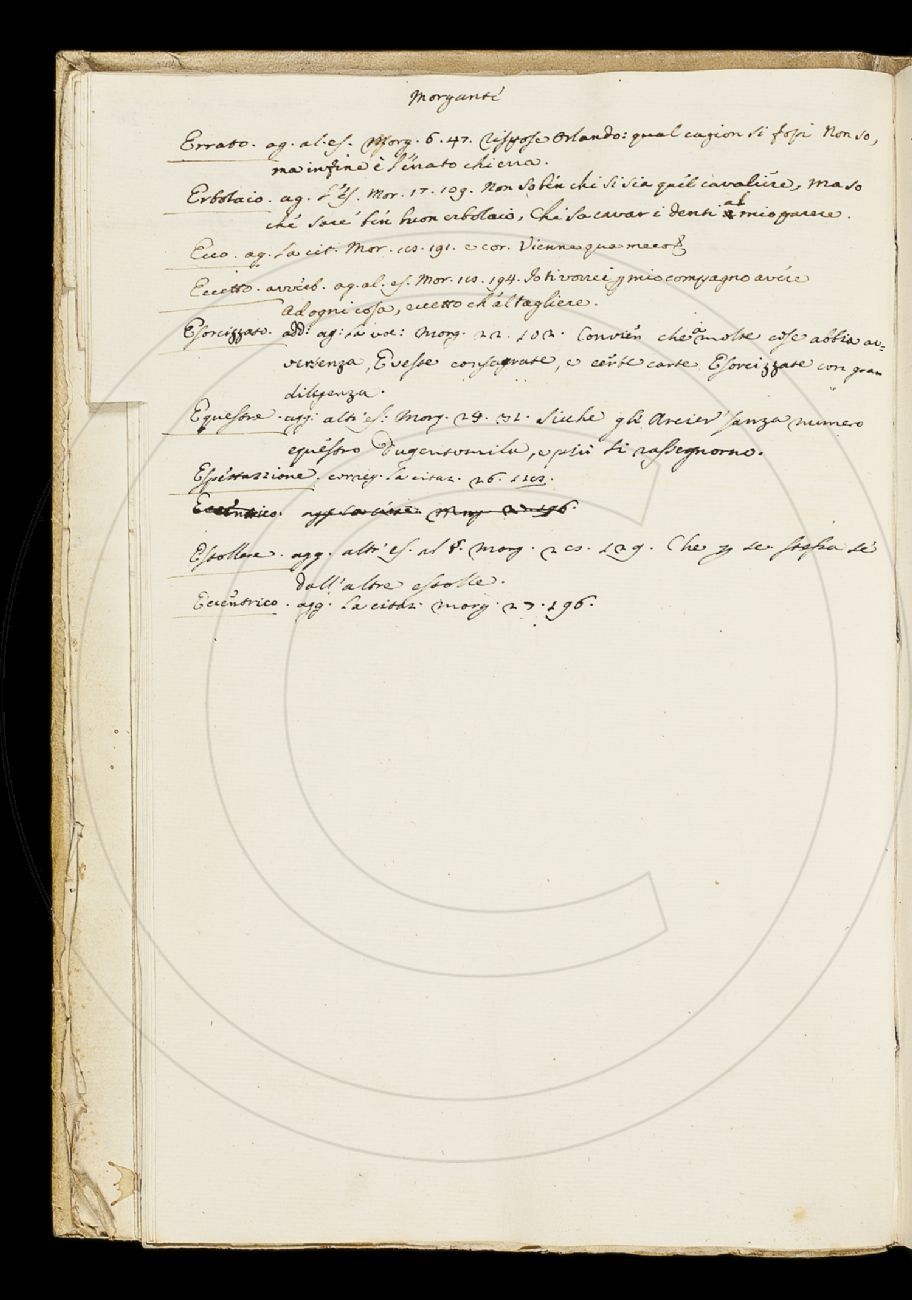 Morganti
Errato. ag. al. es. Morg. 6. 47. Rispose Orlando: qual cagion si fossi Non so,
ma infine è l'errato chi erra.
Erbolaio. ag. l'es. Mor. 17. 109. Non so ben chi si sia quel cavaliere, ma so
che sare' ben buon erbolaio, Che sa cavar i denti al mio parere.
Ecco. ag. la cit. Mor. 18. 191. e cor. Vienne qua meco
Eccetto. avverb. ag. al. es. Mor. 18. 194. Io ti vorrei p mio compagno avere
Ad ogni cosa, eccetto ch'al tagliere.
Esorcizzato. add: ag: la voc: Morg. 22. 102. Convien che a molte cose abbia av=
vertenza, E veste consagrate, e certe carte Esorcizzate con gran
diligenza.
Equestre. agg: altr' es: Morg. 24. 31. Sicche gli Arcier sanza numero
equestro Dugentomila, e più si rassegnorno.
Espettazione. correg. la citaz. 26. 118.
Eccentrico. agg la citaz. Morg 27. 196.
Estollere. agg. altr' es. al §. Morg. 28. 129. Che p se stessa se
dall' altre estolle.
Eccentrico. agg. la citaz. Morg. 27. 196.